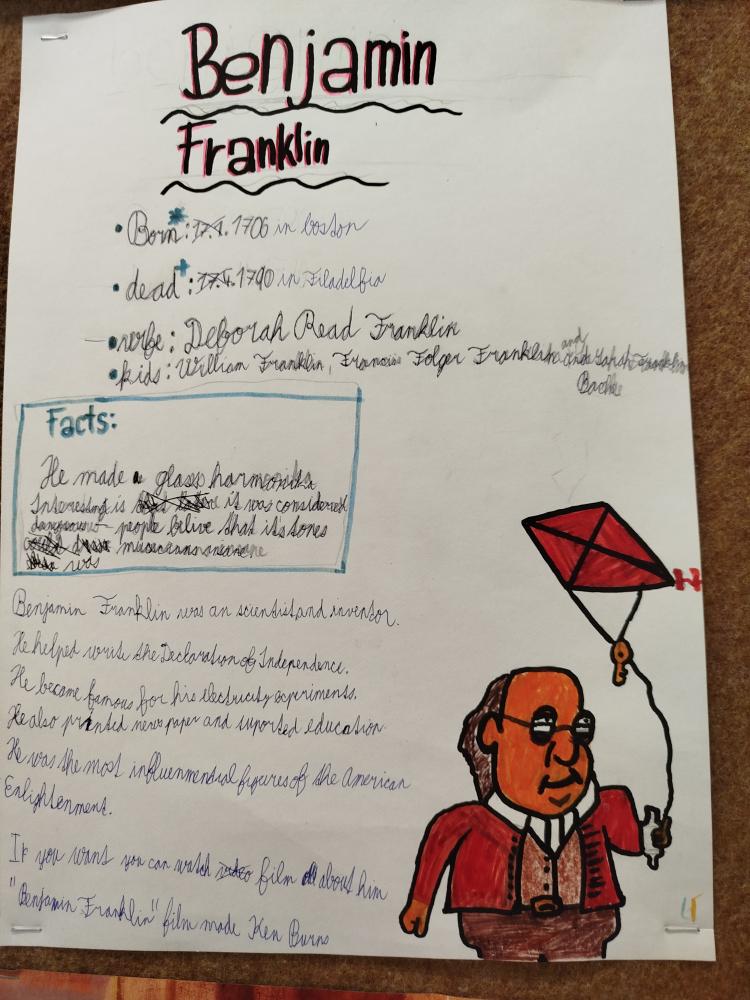 Benjamin
Franklin
• Born*: 17.1. 1706 in boston
• dead+: 17.4. 1790 in Filadelfia
• wife: Deborah Read Franklin
• kids: William Franklin, Francis Folger Franklin and Sarah Franklin
Bache
Facts:
He made a glass harmonika
Interesting is it was considered
dangerous people belive that its tones
was
Benjamin Franklin was an scientist and inventor.
He helped write the Declaration of Independence.
He became famous for his electricity experiments.
He also printed news paper and suported education.
He was the most influenmential figures of the American
Enlightenment.
If you want you can watch film about him
"Benjamin Franklin" film made Ken Burns